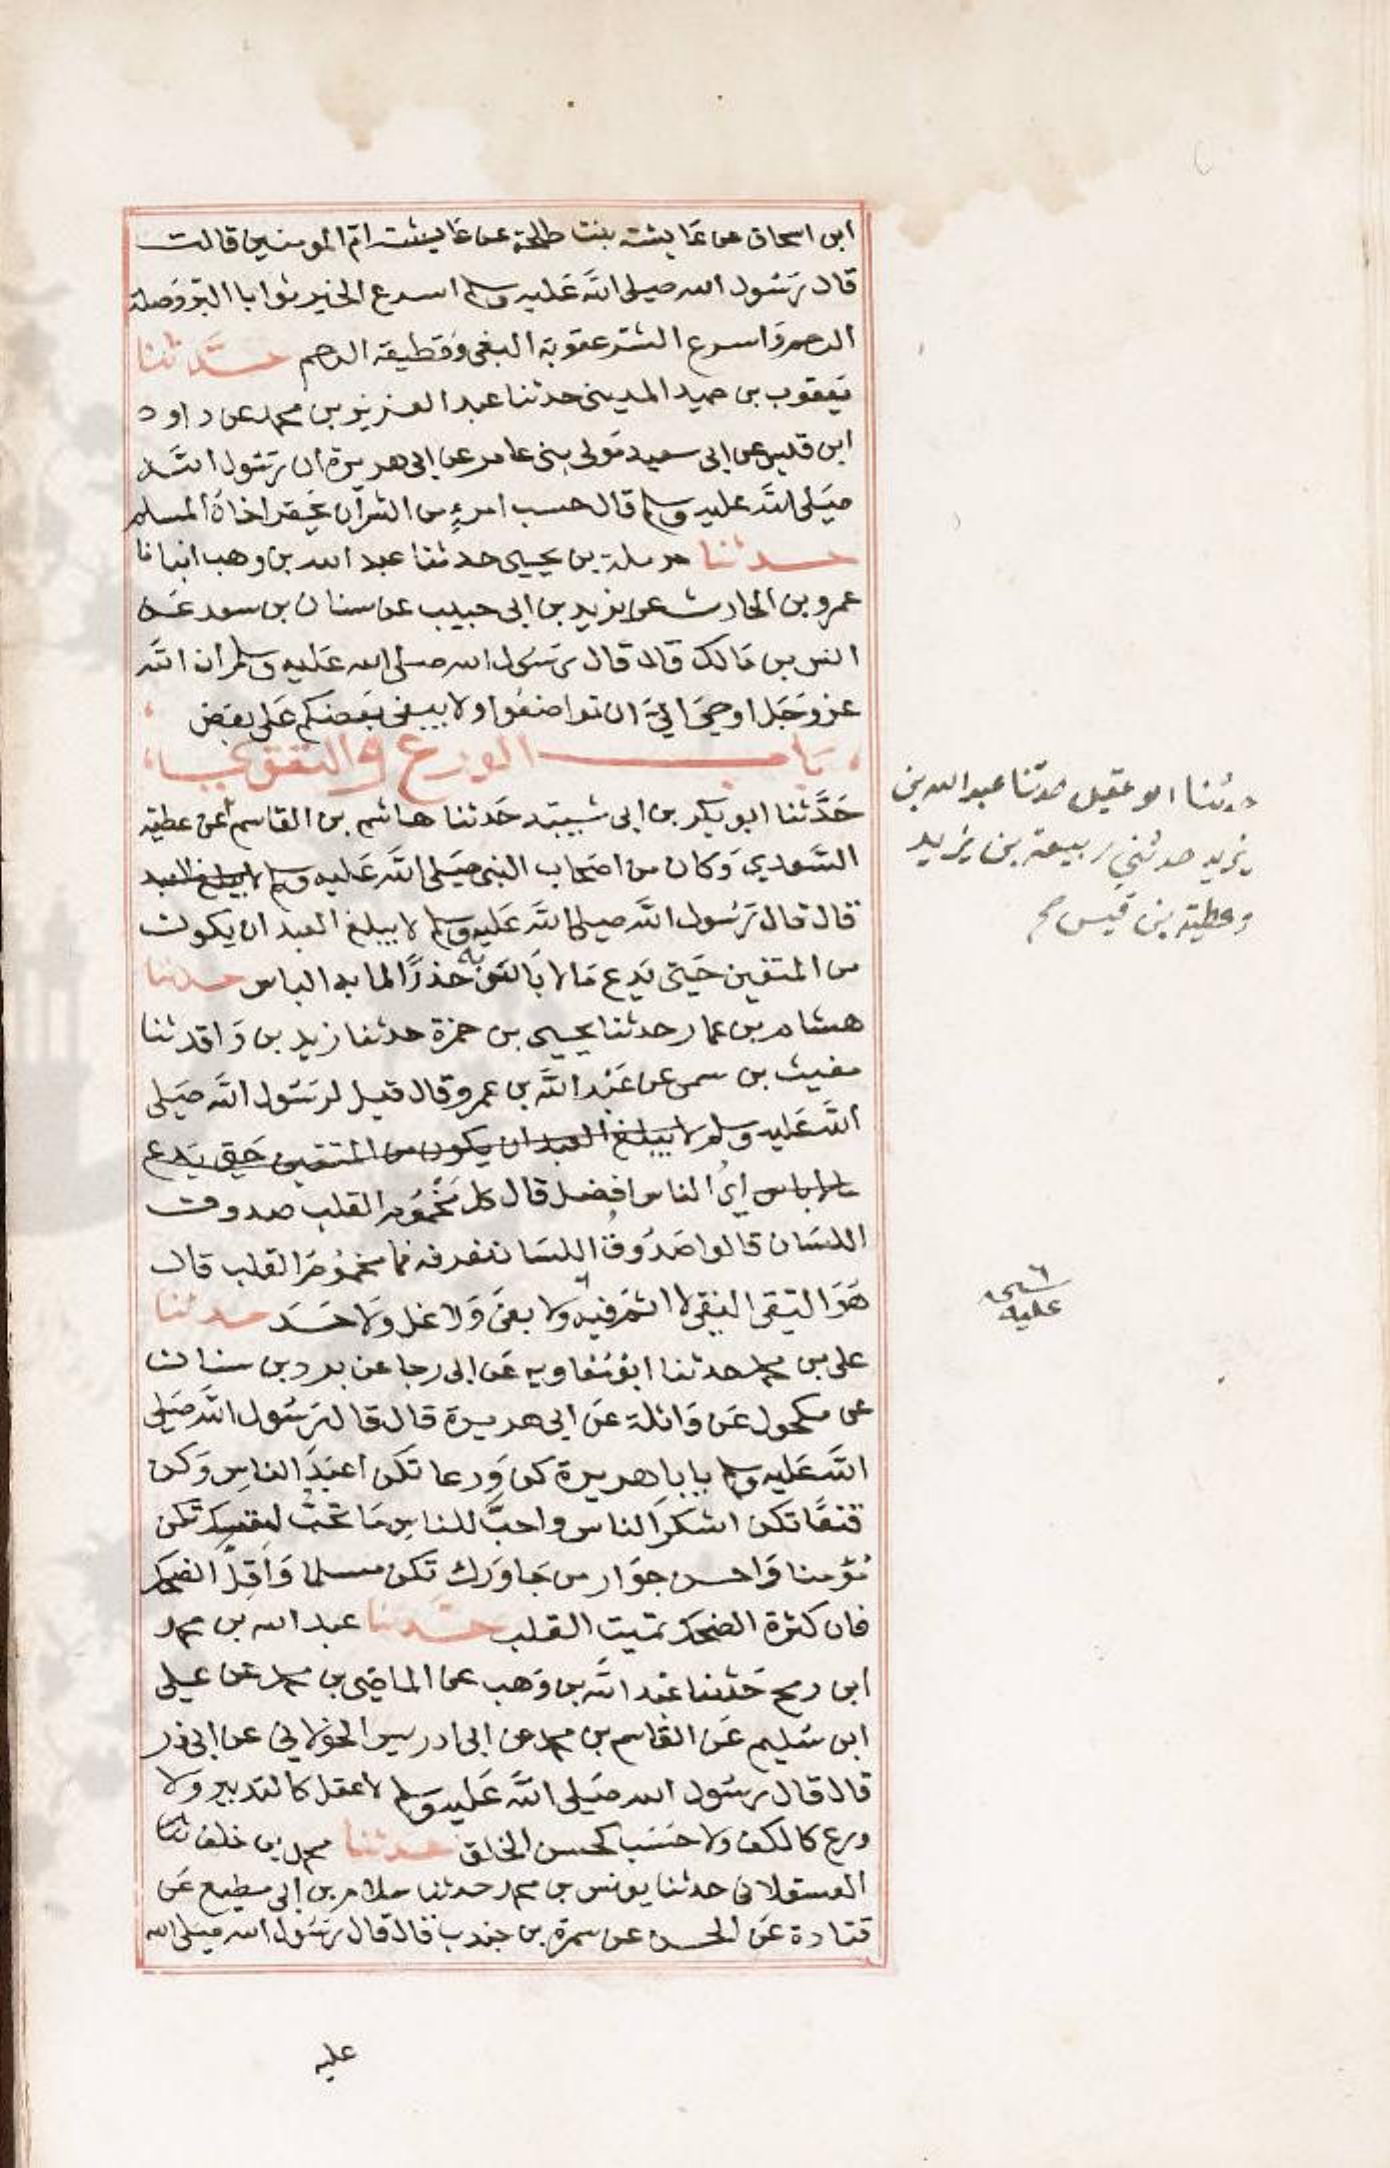 ابن اسحاق عن عايشة بنت طلحة عن عايشة ام المومنين قالت
قال رسول الله صلى الله عليه وسلم اسرع الخير ثوابا البر وصلة
الرحم واسرع الشر عقوبة البغى وقطيعة الرحم حدثنا
يعقوب بن حميد المدينى حدثنا عبد العزيز بن محمد عن داود
ابن قليس عن ابى سعيد مولى بنى عامر عن ابى هريرة ان رسول الله
صلى الله عليه وسلم قال حسب امرءٍ من الشر ان يحقر اخاه المسلم
حدثنا حرملة بن يحيى حدثنا عبد الله بن وهب انبانا
عمرو بن الحارث عن يزيد بن ابى حبيب عن سنان بن سعد عن
انس بن مالك قال قال رسول الله صلى الله عليه وسلم ان الله
عز وجل اوحى الىّ ان تواضعوا ولا يبغى بعضكم على بعض
باب الورع والتقوى
حدثنا ابو بكر بن ابى شيبة حدثنا هاشم بن القاسم عن عطية
السعدي وكان من اصحاب النبى صلى الله عليه وسلم لا يبلغ العبد
قال قال رسول الله صلى الله عليه وسلم لا يبلغ العبد ان يكون
من المتقين حتى يدع مالا باس به حذرًا لما به الباس حدثنا
هشام بن عمار حدثنا يحيى بن حمزة حدثنا زيد بن واقد ثنا
مغيث بن سمى عن عبد الله بن عمرو قال قيل لرسول الله صلى
الله عليه وسلم لا يبلغ العبد ان يكون من المتقين حتى يدع
مالا باس اىُ الناس افضل قال كل مخموم القلب صدوق
اللسان قالوا صدوقُ اللسان نعرفه فما مخموم القلب قال
هو التقى النقى لا اثم فيه ولا بغى ولا غل ولا حسد حدثنا
على بن محمد حدثنا ابو معاويه عن ابى رجا عن برد بن سنان
عن مكحول عن واثلة عن ابى هريرة قال قال رسول الله صلى
الله عليه وسلم يابا هريرة كن ورعا تكن اعبد الناس وكن
قنعًا تكن اشكر الناس واحبَّ للناس ما تحبُّ لنفسك تكن
مؤمنا واحسن جوار من جاورك تكن مسلما واقلَّ الضحك
فان كثرة الضحك تميت القلب حدثنا عبد الله بن محمد
ابن رمح حدثنا عبد الله بن وهب عن الماضى بن محمد عن على
ابن سليم عن القاسم بن محمد عن ابى ادريس الخولانى عن ابى ذر
قال قال رسول الله صلى الله عليه وسلم لا عقل كالتدبير ولا
ورع كالكف ولا حسب كحسن الخلق حدثنا محمد بن خلف ثنا
العسقلانى حدثنا يونس بن محمد حدثنا سلام بن ابى مطيع عن
قتادة عن الحسن عن سمرة بن جندب قال قال رسول الله صلى الله
عليه
حدثنا ابو عقيل حدثنا عبد الله بن
يزيد حدثنى ربيعة بن يزيد
وعطية بن قيس صح
عليه